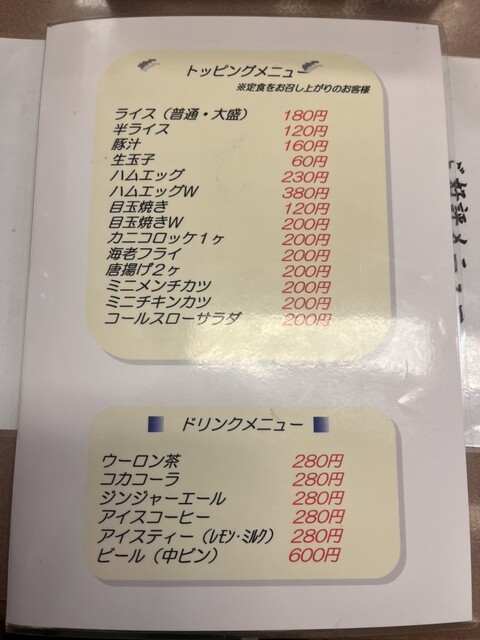 トッピングメニュー
※定食をお召し上がりのお客様
ライス（普通・大盛） 180円
半ライス 120円
豚汁 160円
生玉子 60円
ハムエッグ 230円
ハムエッグW 380円
目玉焼き 120円
目玉焼きW 200円
カニコロッケ１ヶ 200円
海老フライ 200円
唐揚げ２ヶ 200円
ミニメンチカツ 200円
ミニチキンカツ 200円
コールスローサラダ 200円
ドリンクメニュー
ウーロン茶 280円
コカコーラ 280円
ジンジャーエール 280円
アイスコーヒー 280円
アイスティー（ﾚﾓﾝ･ﾐﾙｸ） 280円
ビール（中ビン） 600円
ご好評メニュー